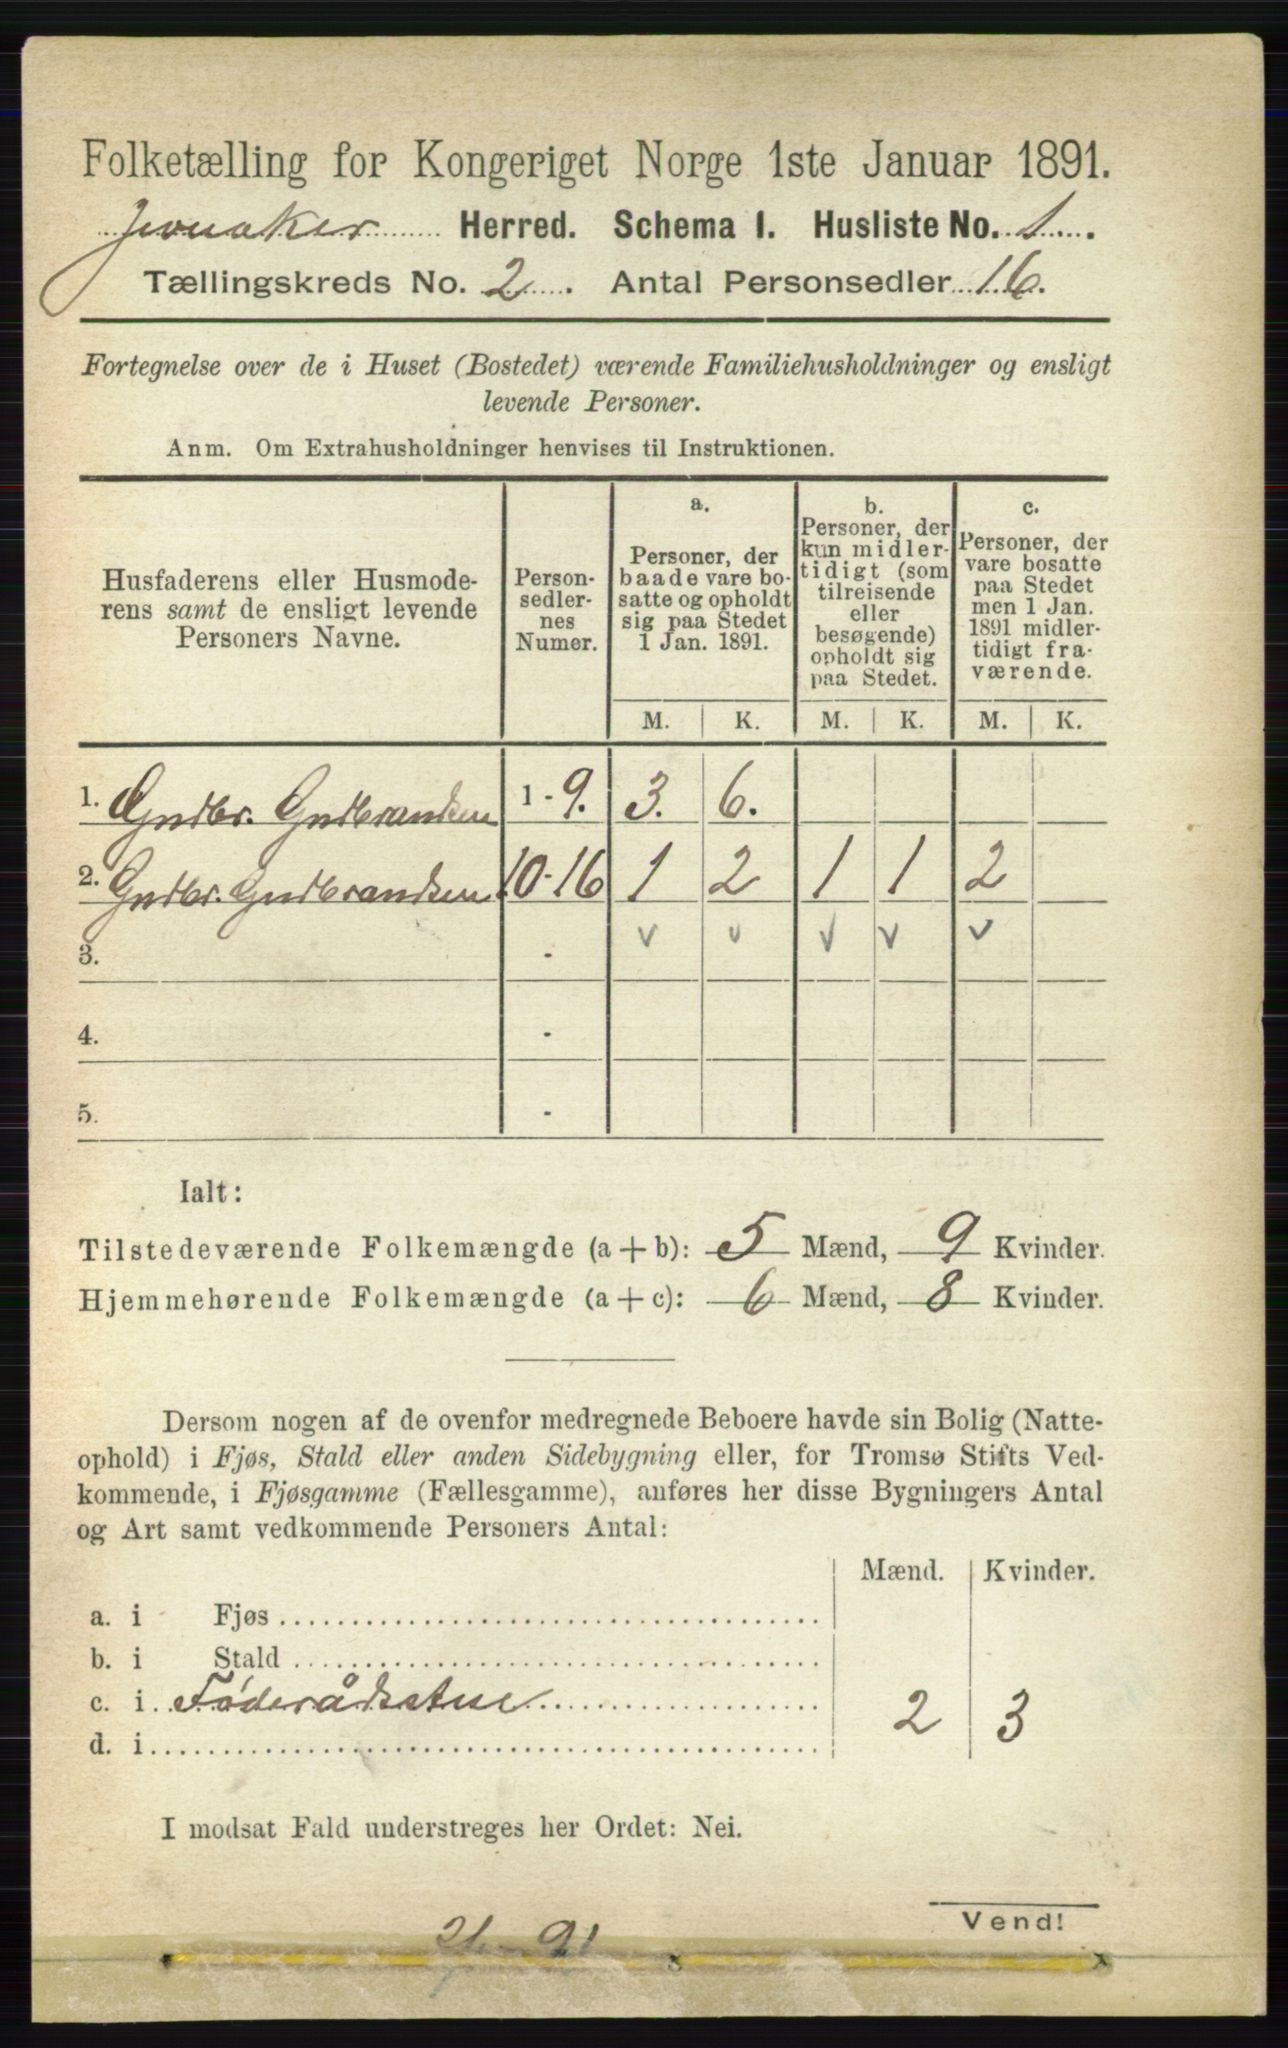 Folketælling for Kongeriget Norge 1ste Januar 1891.
Jevnaker Herred. Schema I. Husliste No. 1.
Tællingskreds No. 2. Antal Personsedler 16.
Fortegnelse over de i Huset (Bostedet) værende Familiehusholdninger og ensligt
levende Personer.
Anm. Om Extrahusholdninger henvises til Instruktionen.
Husfaderens eller Husmode-
rens samt de ensligt levende
Personers Navne.
Person-
sedler-
nes
Numer.
a.
Personer, der
baade vare bo-
satte og opholdt
sig paa Stedet
1 Jan. 1891.
b.
Personer, der
kun midler-
tidigt (som
tilreisende
eller
besøgende)
opholdt sig
paa Stedet.
c.
Personer, der
vare bosatte
paa Stedet
men 1 Jan.
1891 midler-
tidigt fra-
værende.
M. K. M. K. M. K.
1. Gudbr. Gudbrandsen 1 - 9. 3. 6.
2. Gudbr. Gudbrandsen 10-16 1 2 1 1 2
3. - v v v v v
4. -
5. -
Ialt:
Tilstedeværende Folkemængde (a + b): 5 Mænd, 9 Kvinder.
Hjemmehørende Folkemængde (a + c): 6 Mænd, 8 Kvinder.
Dersom nogen af de ovenfor medregnede Beboere havde sin Bolig (Natte-
ophold) i Fjøs, Stald eller anden Sidebygning eller, for Tromsø Stifts Ved-
kommende, i Fjøsgamme (Fællesgamme), anføres her disse Bygningers Antal
og Art samt vedkommende Personers Antal:
Mænd. Kvinder.
a. i Fjøs
b. i Stald
c. i Føderådsstue 2 3
d. i
I modsat Fald understreges her Ordet: Nei.
Vend!